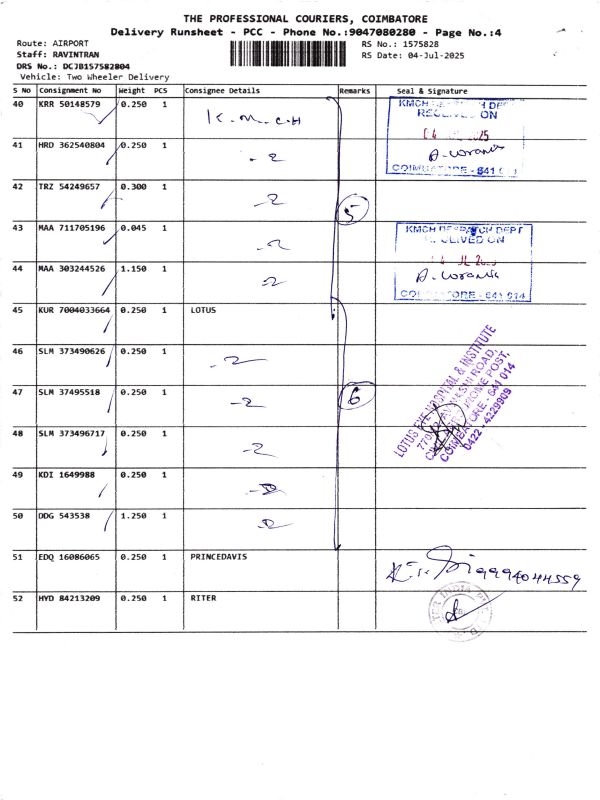 THE PROFESSIONAL COURIERS, COIMBATORE
Delivery Runsheet - PCC - Phone No.:9047080280 - Page No.:4
Route: AIRPORT
RS No.: 1575828
Staff: RAVINTRAN
RS Date: 04-Jul-2025
DRS No.: DCJB157582804
Vehicle: Two Wheeler Delivery
S No Consignment No Weight PCS Consignee Details Remarks Seal & Signature
40 KRR 50148579 0.250 1 K.M.C.H
41 HRD 362540804 0.250 1
42 TRZ 54249657 0.300 1
5
43 MAA 711705196 0.045 1
44 MAA 303244526 1.150 1
45 KUR 7004033664 0.250 1 LOTUS
46 SLM 373490626 0.250 1
47 SLM 37495518 0.250 1
6
48 SLM 373496717 0.250 1
49 KDI 1649988 0.250 1
50 DDG 543538 1.250 1
51 EDQ 16086065 0.250 1 PRINCEDAVIS
52 HYD 84213209 0.250 1 RITER
KMCH DEPT
RECEIVED ON
COIMBATORE - 641
KMCH DESPATCH DEPT
COIMBATORE - 641 014
LOTUS EYE HOSPITAL & INSTITUTE
ROAD,
POST,
COIMBATORE - 641 014
0422 - 4229909
9994044559